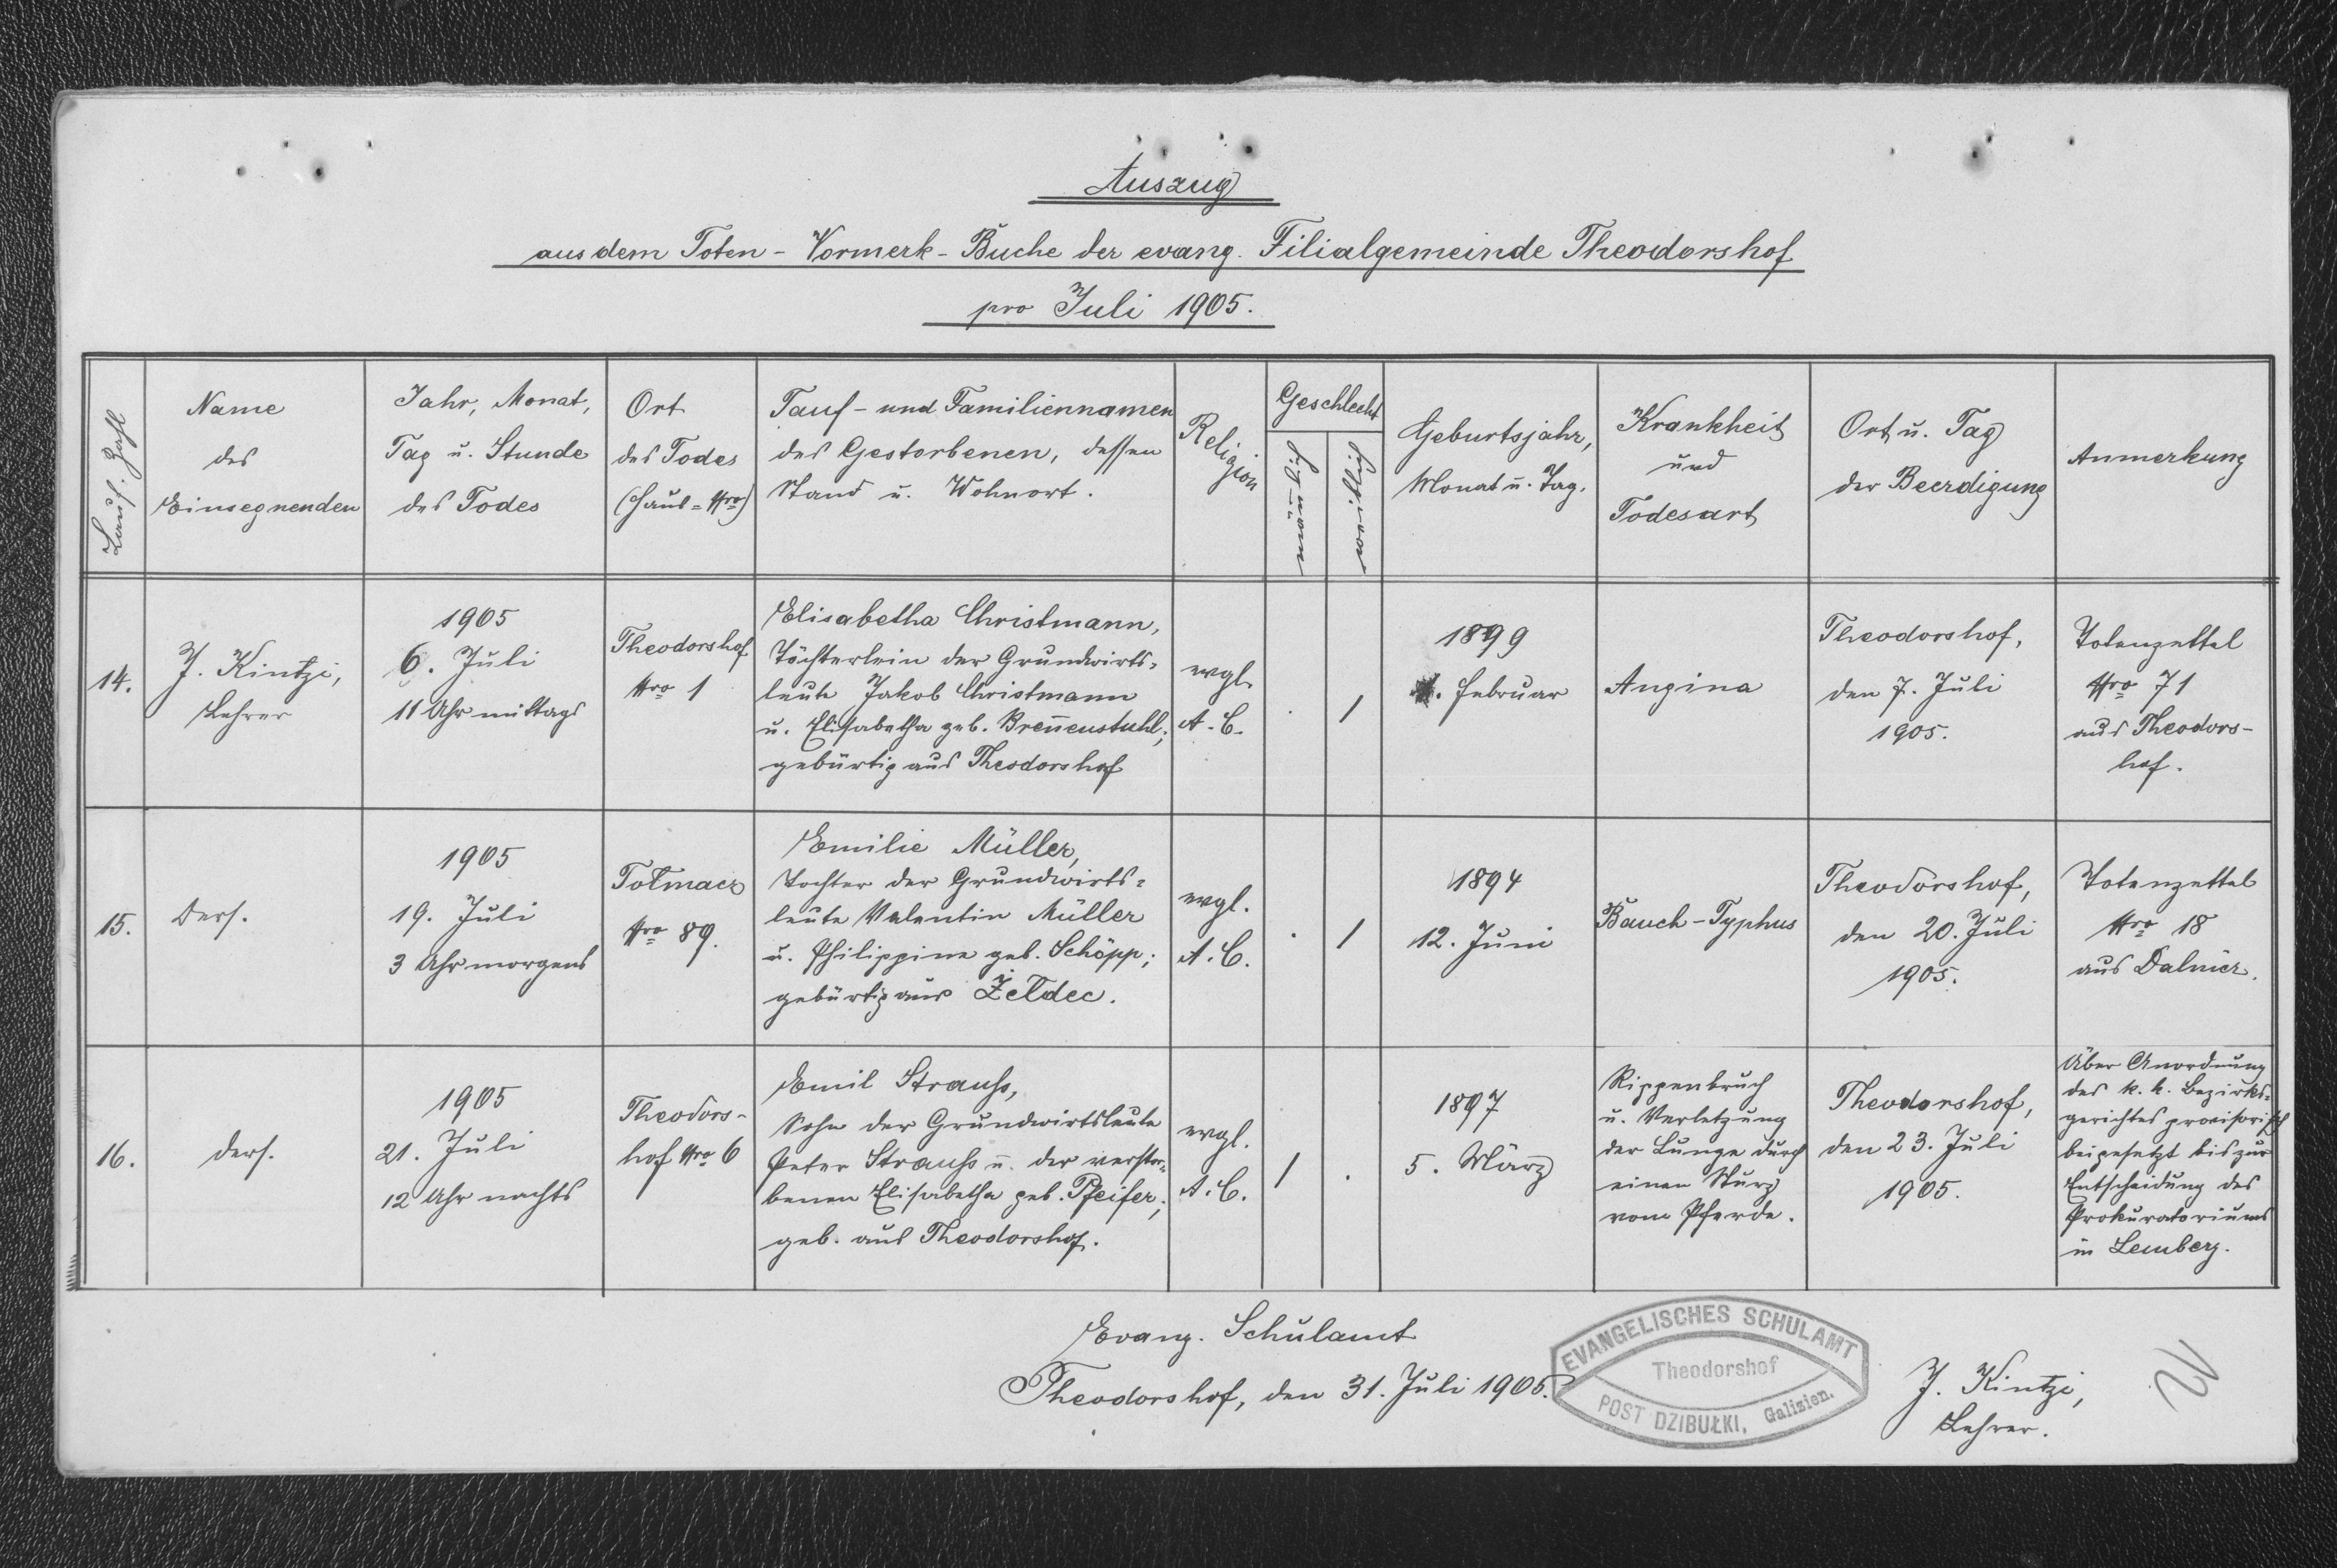 Auszug
aus dem Toten-Vormerk-Buche der evang. Filialgemeinde Theodorshof
pro Juli 1905.
Lauf. Zahl
Name
des
Einsegnenden
Jahr, Monat,
Tag u. Stunde
des Todes
Ort
des Todes
(Haus-Nro)
Tauf- und Familiennamen
des Gestorbenen, dessen
Stand u. Wohnort.
Religion
Geschlecht
männlich
weiblich
Geburtsjahr,
Monat u. Tag.
Krankheit
und
Todesart
Ort u. Tag
der Beerdigung
Anmerkung
14.
J. Kintzi,
Lehrer
1905
6. Juli
11 Uhr mittags
Theodorshof
Nro 1
Elisabetha Christmann,
Töchterlein der Grundwirts-
leute Jakob Christmann
u. Elisabetha geb. Breñenstuhl;
gebürtig aus Theodorshof
evgl.
A. C.
.
1
1899
. Februar
Angina
Theodorshof,
den 7. Juli
1905.
Totenzettel
Nro 71
aus Theodors-
hof.
15.
Ders.
1905
19. Juli
3 Uhr morgens
Tołmacz
Nro 89.
Emilie Müller,
Tochter der Grundwirts-
leute Valentin Müller
u. Philippine geb. Schöpp;
gebürtig aus Żełdec.
evgl.
A. C.
.
1
1894
12. Juni
Bauch-Typhus
Theodorshof,
den 20. Juli
1905.
Totenzettel
Nro 18
aus Dalnicz.
16.
Ders.
1905
21. Juli
12 Uhr nachts
Theodors-
hof Nro 6
Emil Strauß,
Sohn der Grundwirtsleute
Peter Strauß u. der verstor-
benen Elisabetha geb. Pfeifer;
geb. aus Theodorshof.
evgl.
A. C.
1
.
1897
5. März
Rippenbruch
u. Verletzung
der Lunge durch
einen Sturz
vom Pferde.
Theodorshof,
den 23. Juli
1905.
Über Anordnung
des k. k. Bezirks-
gerichtes provisorisch
beigesetzt bis zur
Entscheidung des
Prokuratoriums
in Lemberg.
Evang. Schulamt
Theodorshof, den 31. Juli 1905.
EVANGELISCHES SCHULAMT
Theodorshof
POST DZIBUŁKI, Galizien.
J. Kintzi,
Lehrer.